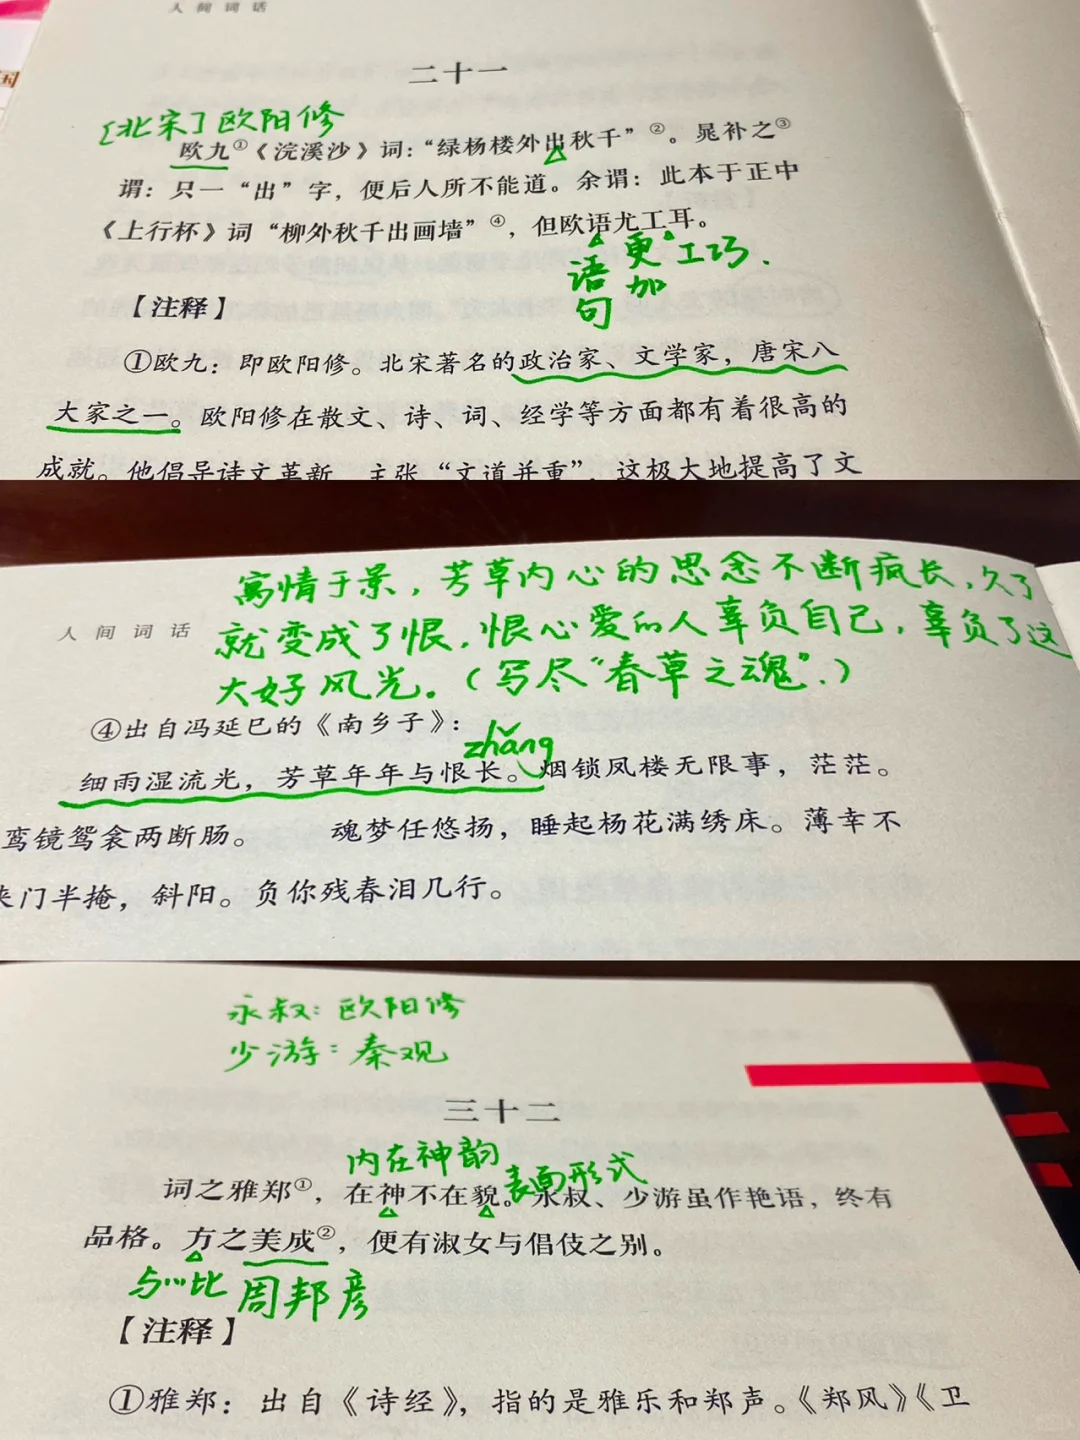 国
人间词话
二十一
[北宋]欧阳修
欧九①《浣溪沙》词：“绿杨楼外出秋千”②。晁补之③
谓：只一“出”字，便后人所不能道。余谓：此本于正中
《上行杯》词“柳外秋千出画墙”④，但欧语尤工耳。
语句 更加 工巧.
【注释】
①欧九：即欧阳修。北宋著名的政治家、文学家，唐宋八
大家之一。欧阳修在散文、诗、词、经学等方面都有着很高的
成就。他倡导诗文革新，主张“文道并重”，这极大地提高了文
寓情于景，芳草内心的思念不断疯长，久了
人间词话
就变成了恨，恨心爱的人辜负自己，辜负了这
大好风光。（写尽“春草之魂”.）
④出自冯延巳的《南乡子》：
zhǎng
细雨湿流光，芳草年年与恨长。烟锁凤楼无限事，茫茫。
鸾镜鸳衾两断肠。 魂梦任悠扬，睡起杨花满绣床。薄幸不
来门半掩，斜阳。负你残春泪几行。
永叔：欧阳修
少游：秦观
三十二
内在神韵 表面形式
词之雅郑①，在神不在貌。永叔、少游虽作艳语，终有
品格。方之美成②，便有淑女与倡伎之别。
与…比 周邦彦
【注释】
①雅郑：出自《诗经》，指的是雅乐和郑声。《郑风》《卫